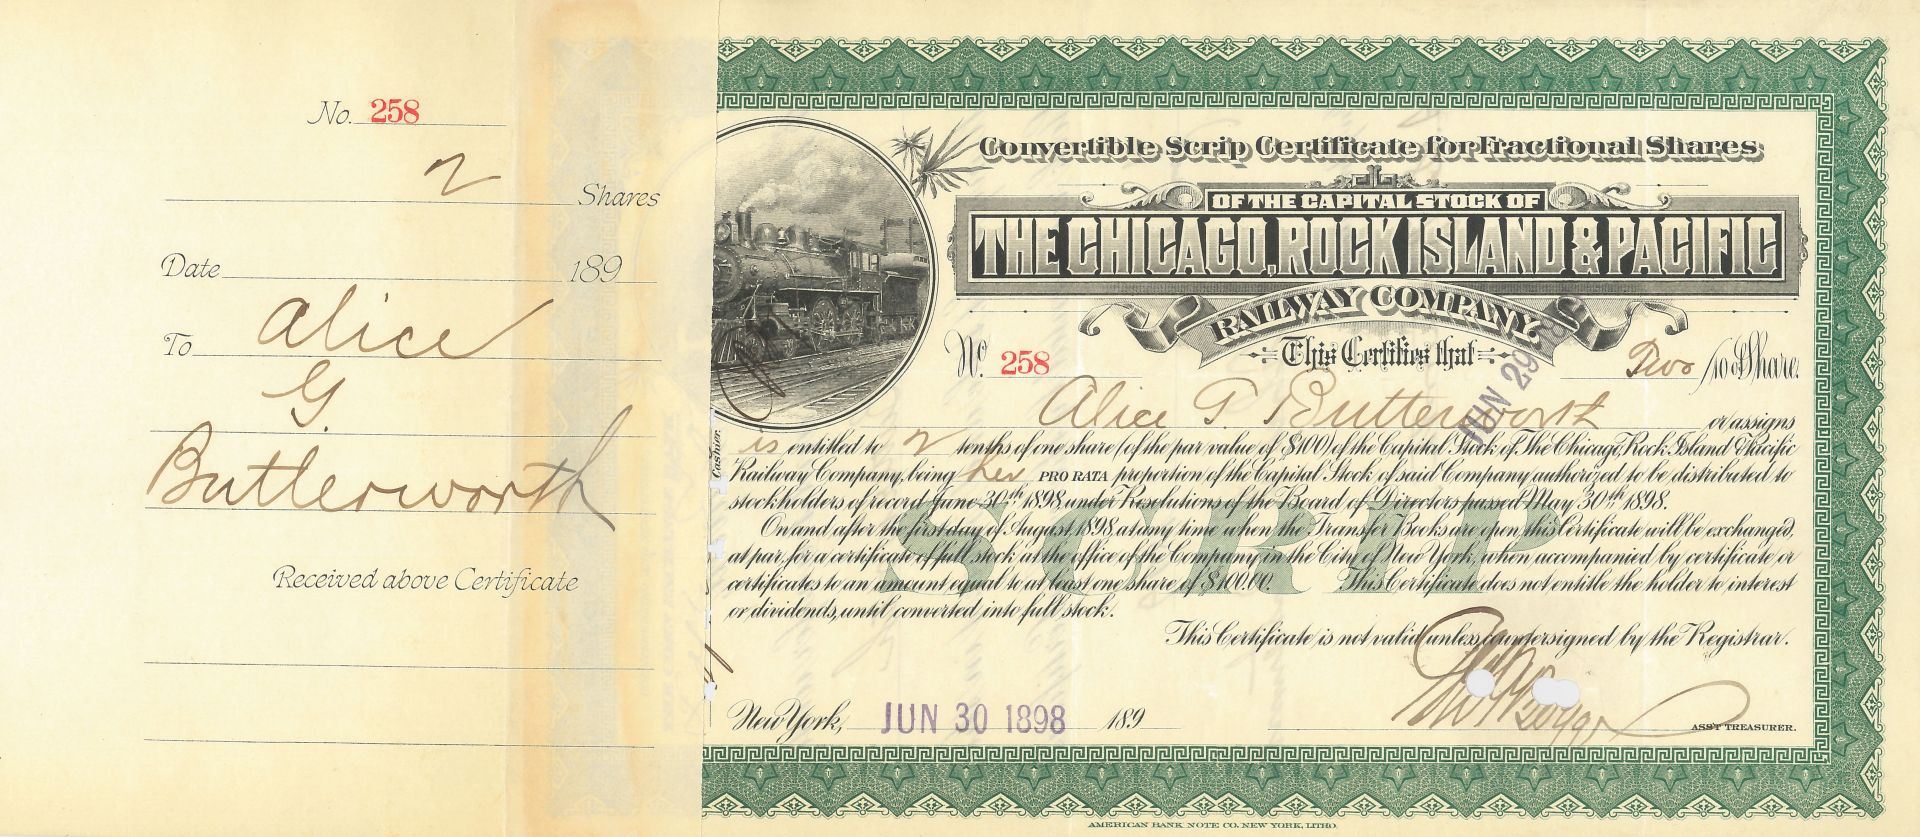 No. 258
2 Shares
Date 189
To Alice
G.
Butterworth
Received above Certificate
Convertible Scrip Certificate for Fractional Shares
OF THE CAPITAL STOCK OF
THE CHICAGO, ROCK ISLAND & PACIFIC
RAILWAY COMPANY.
This Certifies that
No. 258
Two /10 of Share.
JUN 29
Alice G. Butterworth or assigns
Cashier.
is entitled to 2 tenths of one share (of the par value of $100) of the Capital Stock of The Chicago, Rock Island & Pacific
Railway Company, being her PRO RATA proportion of the Capital Stock of said Company authorized to be distributed to
stockholders of record June 30th 1898, under Resolutions of the Board of Directors passed May 30th 1898.
On and after the first day of August, 1898, at any time when the Transfer Books are open this Certificate will be exchanged,
at par, for a certificate of full stock at the office of the Company in the City of New York, when accompanied by certificate or
certificates to an amount equal to at least one share of $100.00. This Certificate does not entitle the holder to interest
or dividends, until converted into full stock.
SCRIP
This Certificate is not valid unless countersigned by the Registrar.
New York, JUN 30 1898 189
ASS'T TREASURER.
AMERICAN BANK NOTE CO. NEW YORK, LITHO.